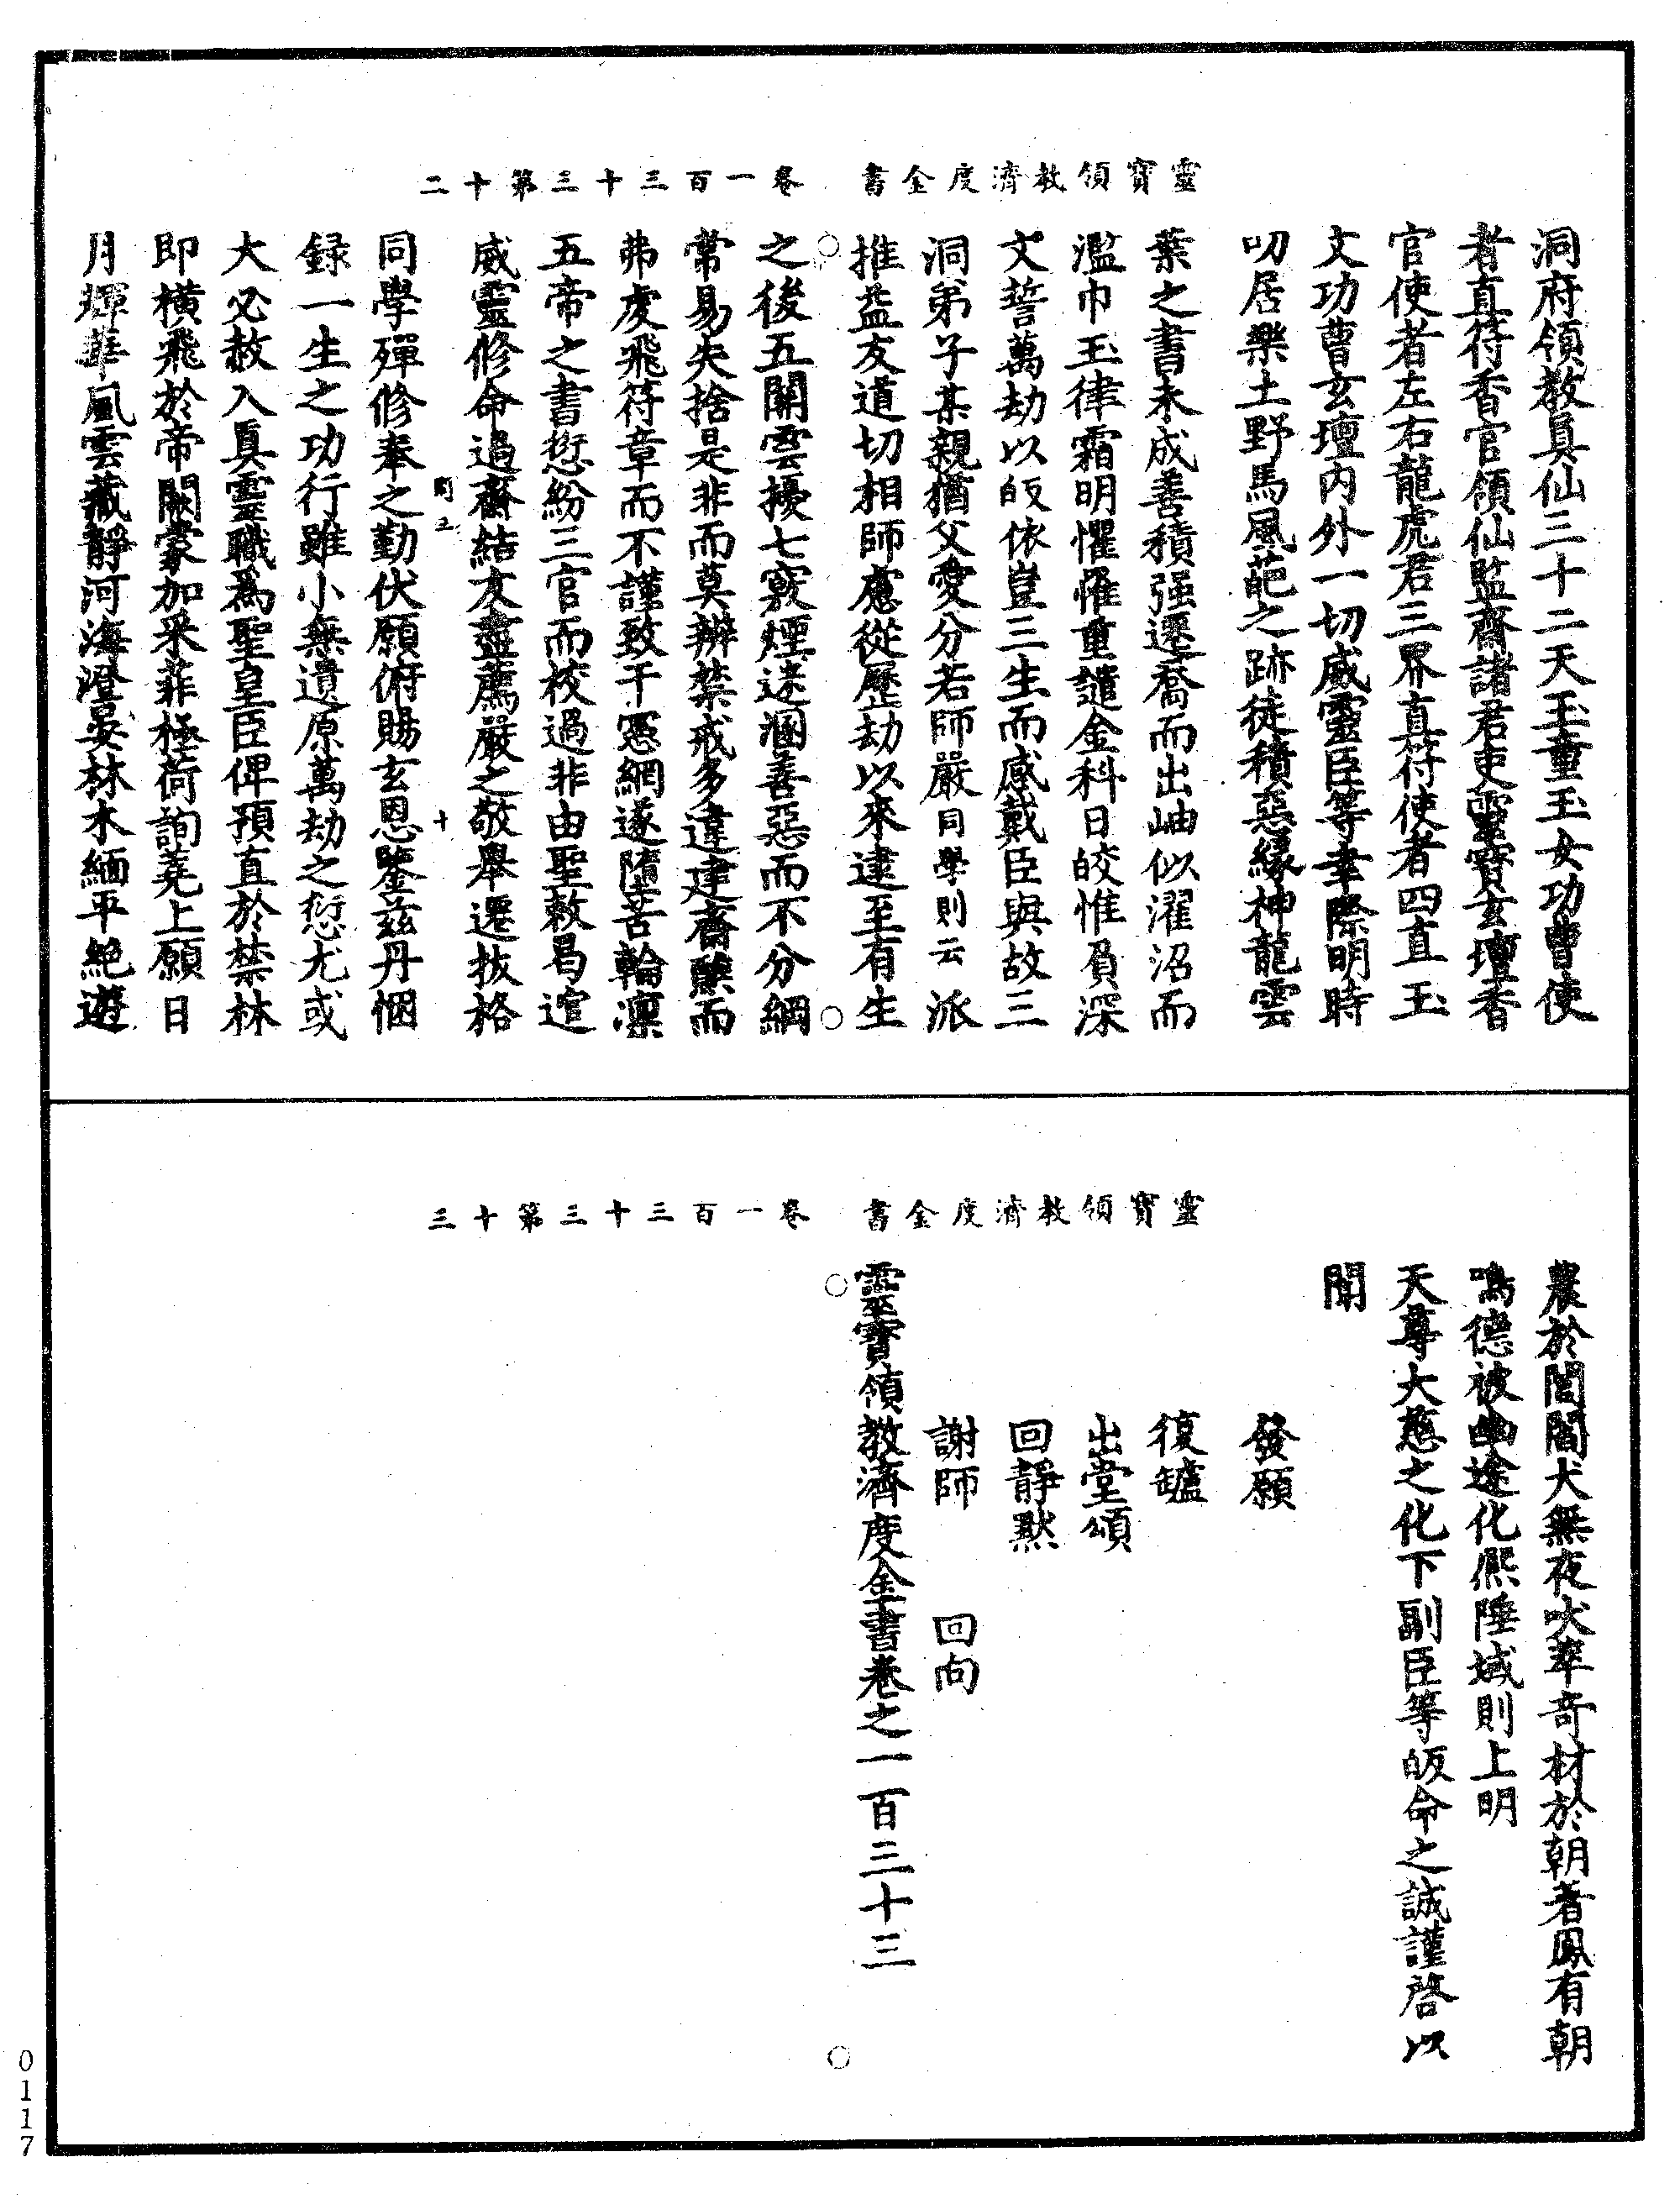 靈寶領教濟度金書　卷一百三十三第十二
洞府領教真仙三十二天玉童玉女功曹使
者真符香官領仙監齋諸君吏靈寶玄壇香
官使者左右龍虎君三界真符使者四直玉
文功曹玄壇內外一切威靈臣等幸際明時
叨居樂土野馬風葩之跡徒積惡緣神龍雲
葉之書未成善積强遷喬而出岫似濯沼而
濫巾玉律霜明懼惟重譴金科日皎惟負深
文誓萬劫以皈依豈三生而感戴臣與故三
洞弟子某親猶父愛分若師嚴同學則云派
推益友道切相師慮從歷劫以來逮至有生
之後五關雲擾七竅煙迷涵善惡而不分綱
常易失捨是非而莫辨禁戒多違建齋醮而
弗虔飛符章而不謹致干憲網遂墮苦輪凛
五帝之書愆紛三官而校過非由聖敕曷逭
威靈修命過齋結友盡薦嚴之敬舉遷拔格
同學殫修奉之勤伏願俯賜玄恩鑒兹丹悃
録一生之功行雖小無遺原萬劫之愆尤或
大必赦入真靈職爲聖皇臣俾預直於禁林
即橫飛於帝闕蒙加釆菲極荷詢蕘上願日
月輝華風雲藏靜河海澄晏林木緬平絶遊
靈寶領教濟度金書　卷一百三十三第十三
農於閭閻犬無夜吠萃奇材於朝著鳳有朝
鳴德被幽途化熙陲域則上明
天尊大慈之化下副臣等皈命之誠謹啓以
聞
發願
復罏
出堂頌
回靜默
謝師　回向
靈寶領教濟度金書卷之一百三十三
0117